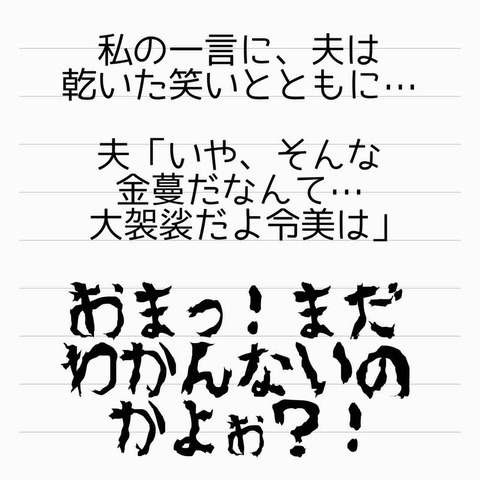 私の一言に、夫は
乾いた笑いとともに…
夫「いや、そんな
金蔓だなんて…
大袈裟だよ令美は」
おまっ！まだ
わかんないの
かよぉ？！